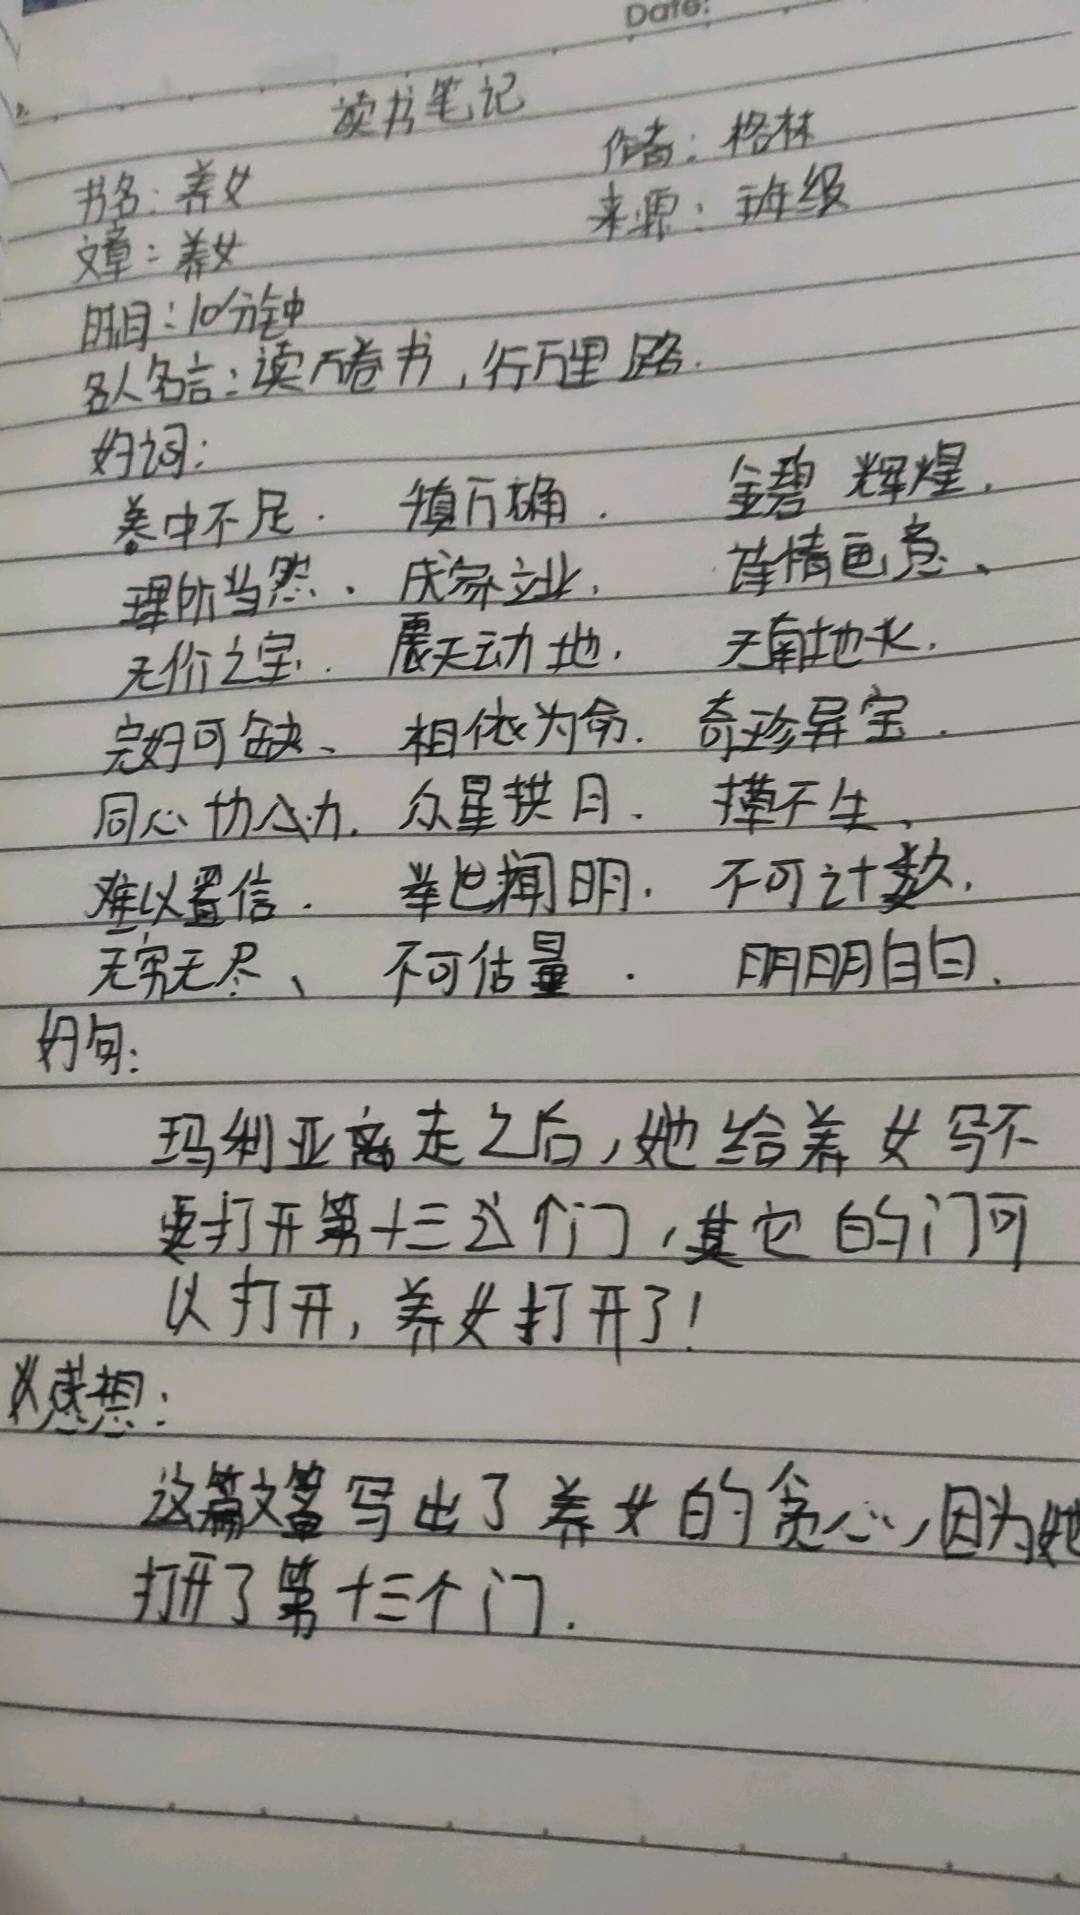 Date:
读书笔记
书名：养女 作者：格林
文章：养女 来源：班级
时间：10分钟
名人名言：读万卷书，行万里路.
好词：
美中不足. 万确. 金碧辉煌.
理所当然、成家立业. 情画意、
无价之宝. 震天动地. 天南地
完好可缺、相依为命. 奇珍异宝.
同心协力. 众星拱月. 不生、
难以置信. 举世闻明. 不可计数.
无穷无尽、不可估量. 明明白白.
好句：
玛利亚离走之后，她给养女写不
要打开第十三这个门，其它的门可
以打开，养女打开了！
感想：
这篇文章写出了养女的贪心，因为她
打开了第十三个门.